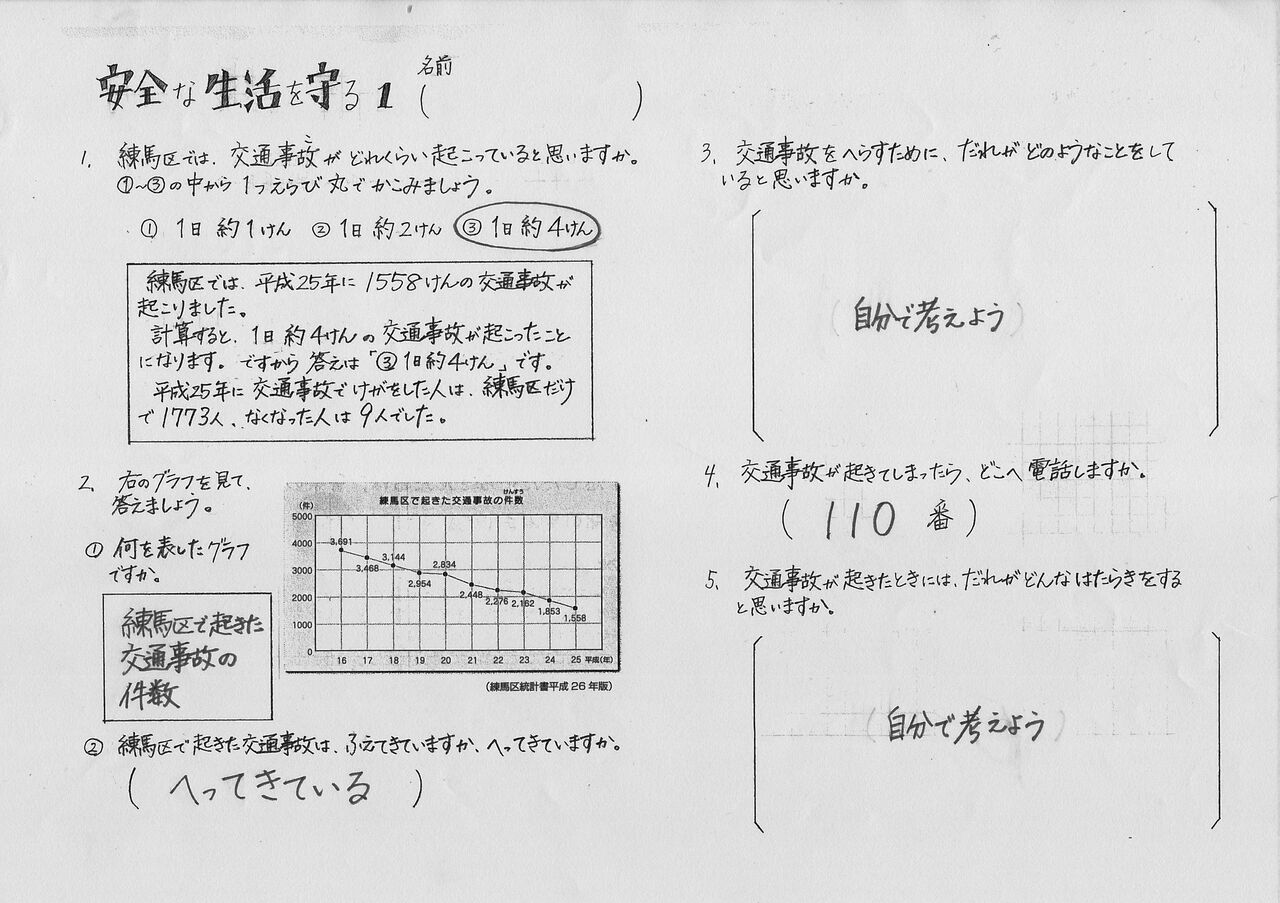 安全な生活を守る1
名前
( )
1. 練馬区では、交通事故がどれくらい起こっていると思いますか。
①~③の中から1つえらび丸でかこみましょう。
① 1日約1けん ② 1日約2けん ③ 1日約4けん
練馬区では、平成25年に1558けんの交通事故が
起こりました。
計算すると、1日約4けんの交通事故が起こったこと
になります。ですから答えは「③1日約4けん」です。
平成25年に交通事故でけがをした人は、練馬区だけ
で1773人、なくなった人は9人でした。
2. 右のグラフを見て、
答えましょう。
① 何を表したグラフ
ですか。
練馬区で起きた
交通事故の
件数
練馬区で起きた交通事故の件数
けんすう
(件)
5000
4000
3000
2000
1000
0
3,691
3,468
3,144
2,954
2,834
2,448
2,276
2,162
1,853
1,558
16 17 18 19 20 21 22 23 24 25 平成(年)
(練馬区統計書平成26年版)
② 練馬区で起きた交通事故は、ふえてきていますか、へってきていますか。
( へってきている )
3. 交通事故をへらすために、だれがどのようなことをして
いると思いますか。
(自分で考えよう)
4. 交通事故が起きてしまったら、どこへ電話しますか。
( 110 番 )
5. 交通事故が起きたときには、だれがどんなはたらきをする
と思いますか。
(自分で考えよう)